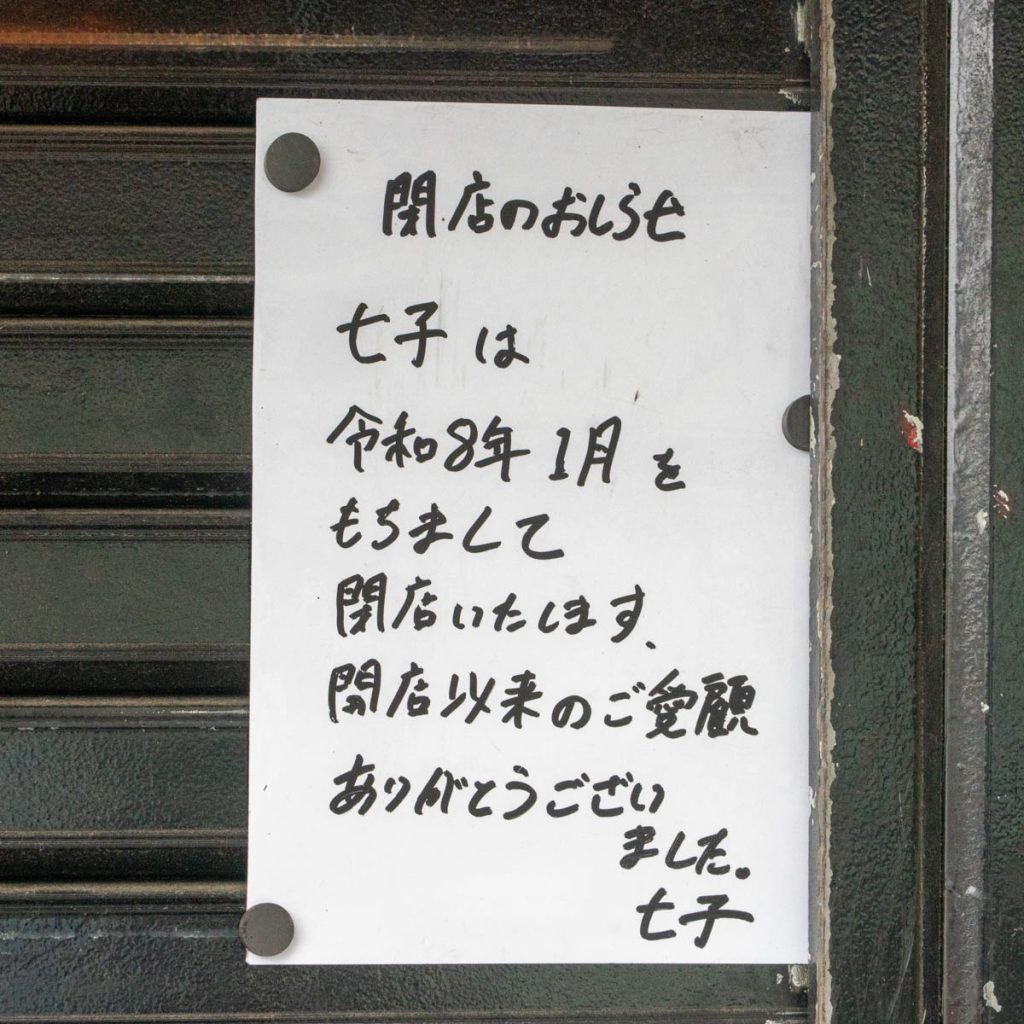 閉店のおしらせ
七子は
令和8年1月を
もちまして
閉店いたします、
開店以来のご愛顧
ありがとうござい
ました。
七子